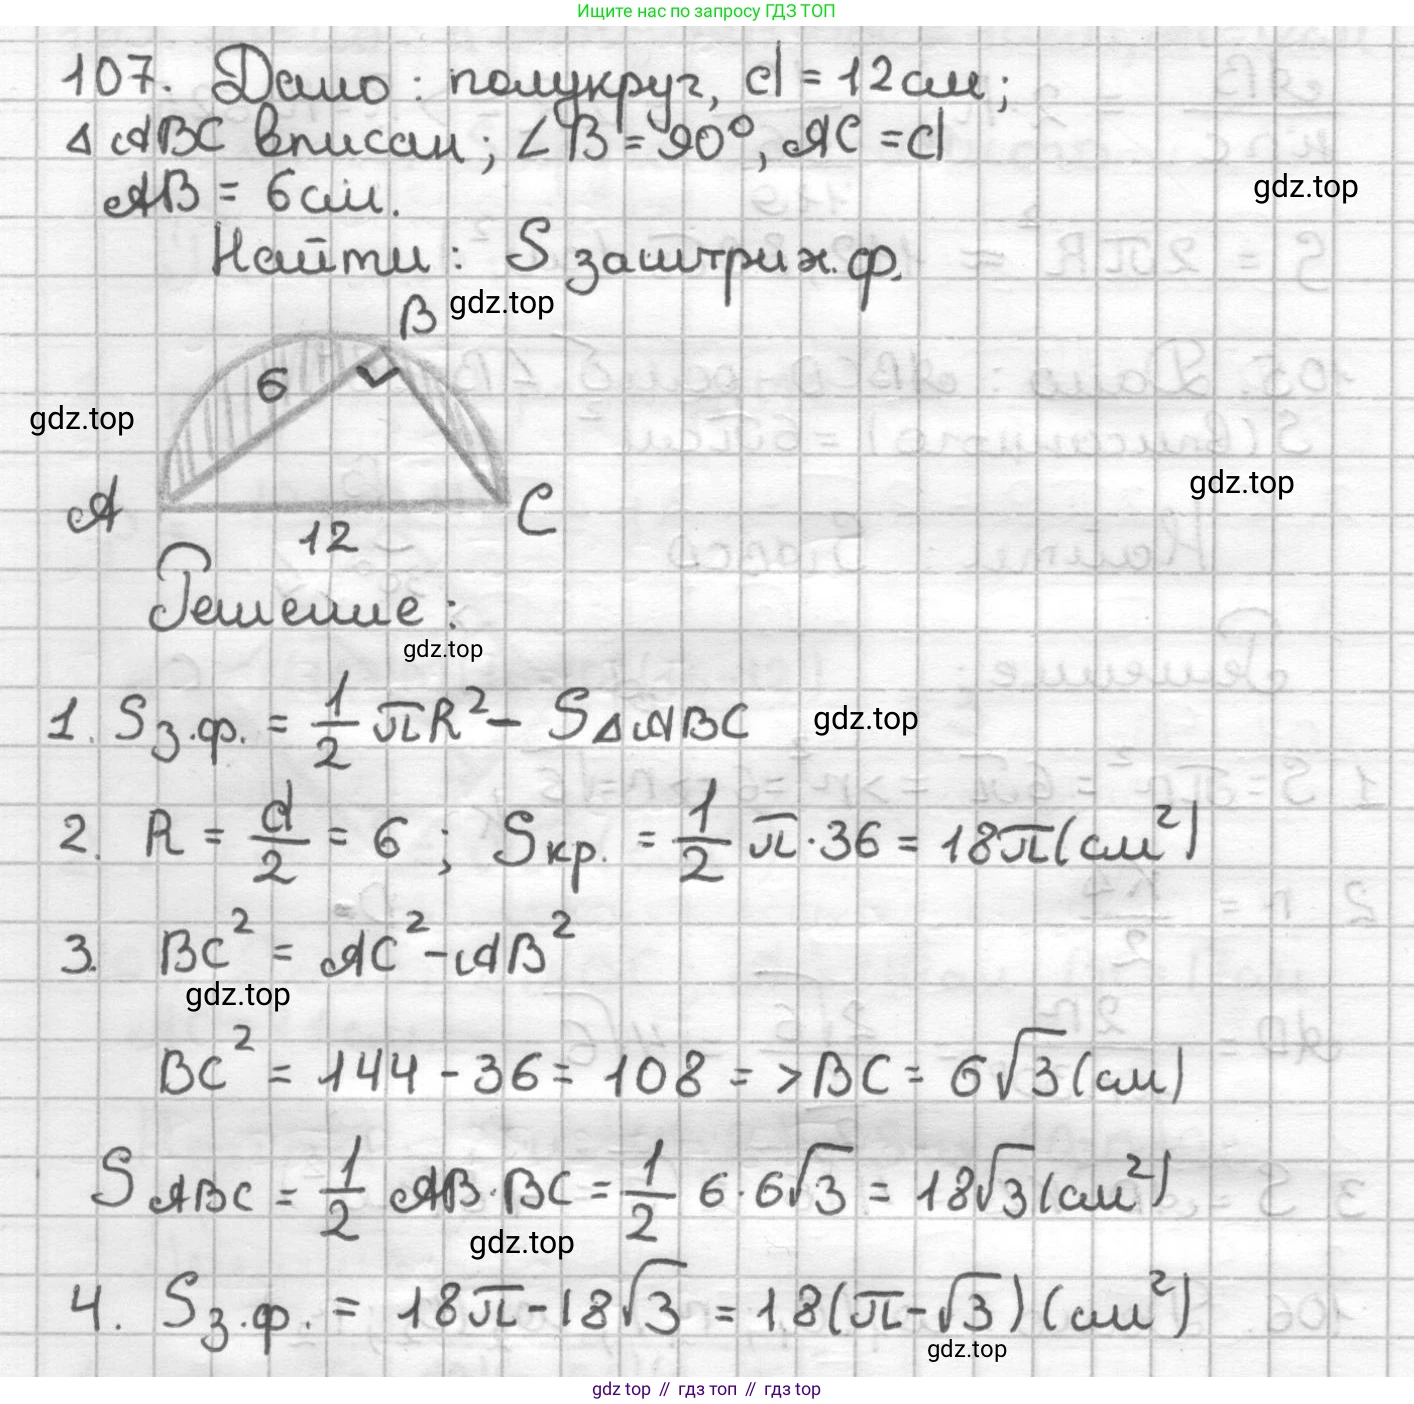 Ищите нас по запросу ГДЗ ТОП
107. Дано: полукруг, d = 12 см;
△ ABC вписан; ∠B = 90°, AC = d
AB = 6 см.
gdz.top
Найти: S заштрих. ф.
B gdz.top
6
gdz.top
gdz.top
A C
12
Решение:
gdz.top
1. Sз.ф. = 1/2 πR² - S△ABC gdz.top
2. R = d/2 = 6; Sкр. = 1/2 π·36 = 18π(см²)
3. BC² = AC² - AB²
gdz.top
BC² = 144 - 36 = 108 => BC = 6√3(см)
S ABC = 1/2 AB·BC = 1/2 6·6√3 = 18√3(см²)
gdz.top
4. Sз.ф. = 18π - 18√3 = 18(π-√3)(см²)
gdz.top
gdz top // гдз топ // gdz top